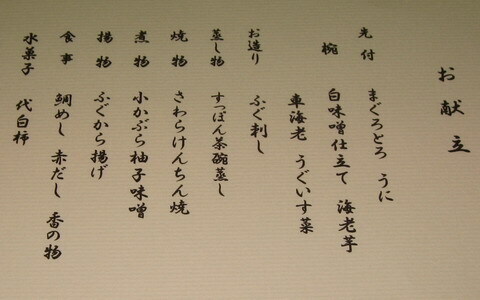 お献立
先付 まぐろとろ うに
椀 白味噌仕立て 海老芋
車海老 うぐいす菜
お造り ふぐ刺し
蒸し物 すっぽん茶碗蒸し
焼物 さわらけんちん焼
煮物 小かぶら柚子味噌
揚物 ふぐから揚げ
食事 鯛めし 赤だし 香の物
水菓子 代白柿